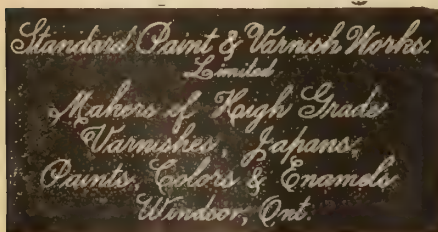 Standard Paint & Varnish Works.
Limited
Makers of High Grade
Varnishes, Japans,
Paints, Colors & Enamels
Windsor, Ont.